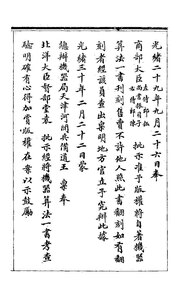 光緒二十九年九月二十六日奉
商部大臣 批示准予版權將自著機器
算法一書刊刻售賣不許他人照此書翻刻如有翻
刻者經該員查出稟明地方官立予究辦此據
光緒三十年二月二十二日蒙
總辦機器局天津河間兵備道王 稟奉
北洋大臣督部堂袁 批示經將機器算法一書考查
聰明確有心得加賞版權在案以示鼓勵